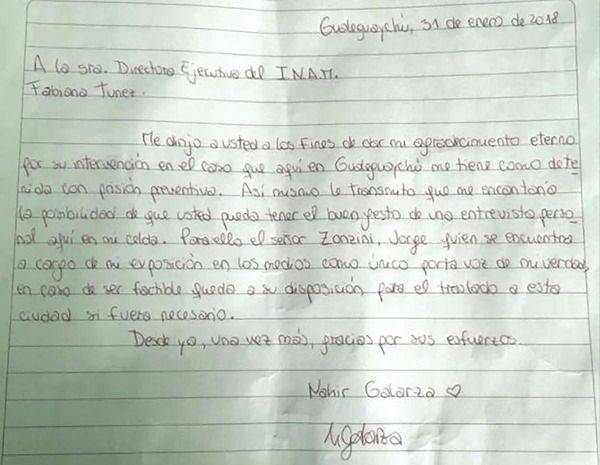 Gualeguaychú, 31 de enero de 2018
A la sra. Directora Ejecutiva del I.N.A.M.
Fabiana Tunez.
Me dirijo a usted a los fines de dar mi agradecimiento eterno
por su intervención en el caso que aquí en Gualeguaychú me tiene como dete-
nida con pasión preventiva. Asi mismo le transmito que me encantaria
la posibilidad de que usted pueda tener el buen gesto de una entrevista perso-
nal aquí en mi celda. Para ello el señor Zonzini, Jorge quien se encuentra
a cargo de mi exposición en los medios como único porta voz de mi verdad,
en caso de ser factible queda a su disposición, para el traslado a esta
ciudad si fuera necesario.
Desde ya, una vez más, gracias por sus esfuerzos.
Nahir Galarza ♡
NGalarza